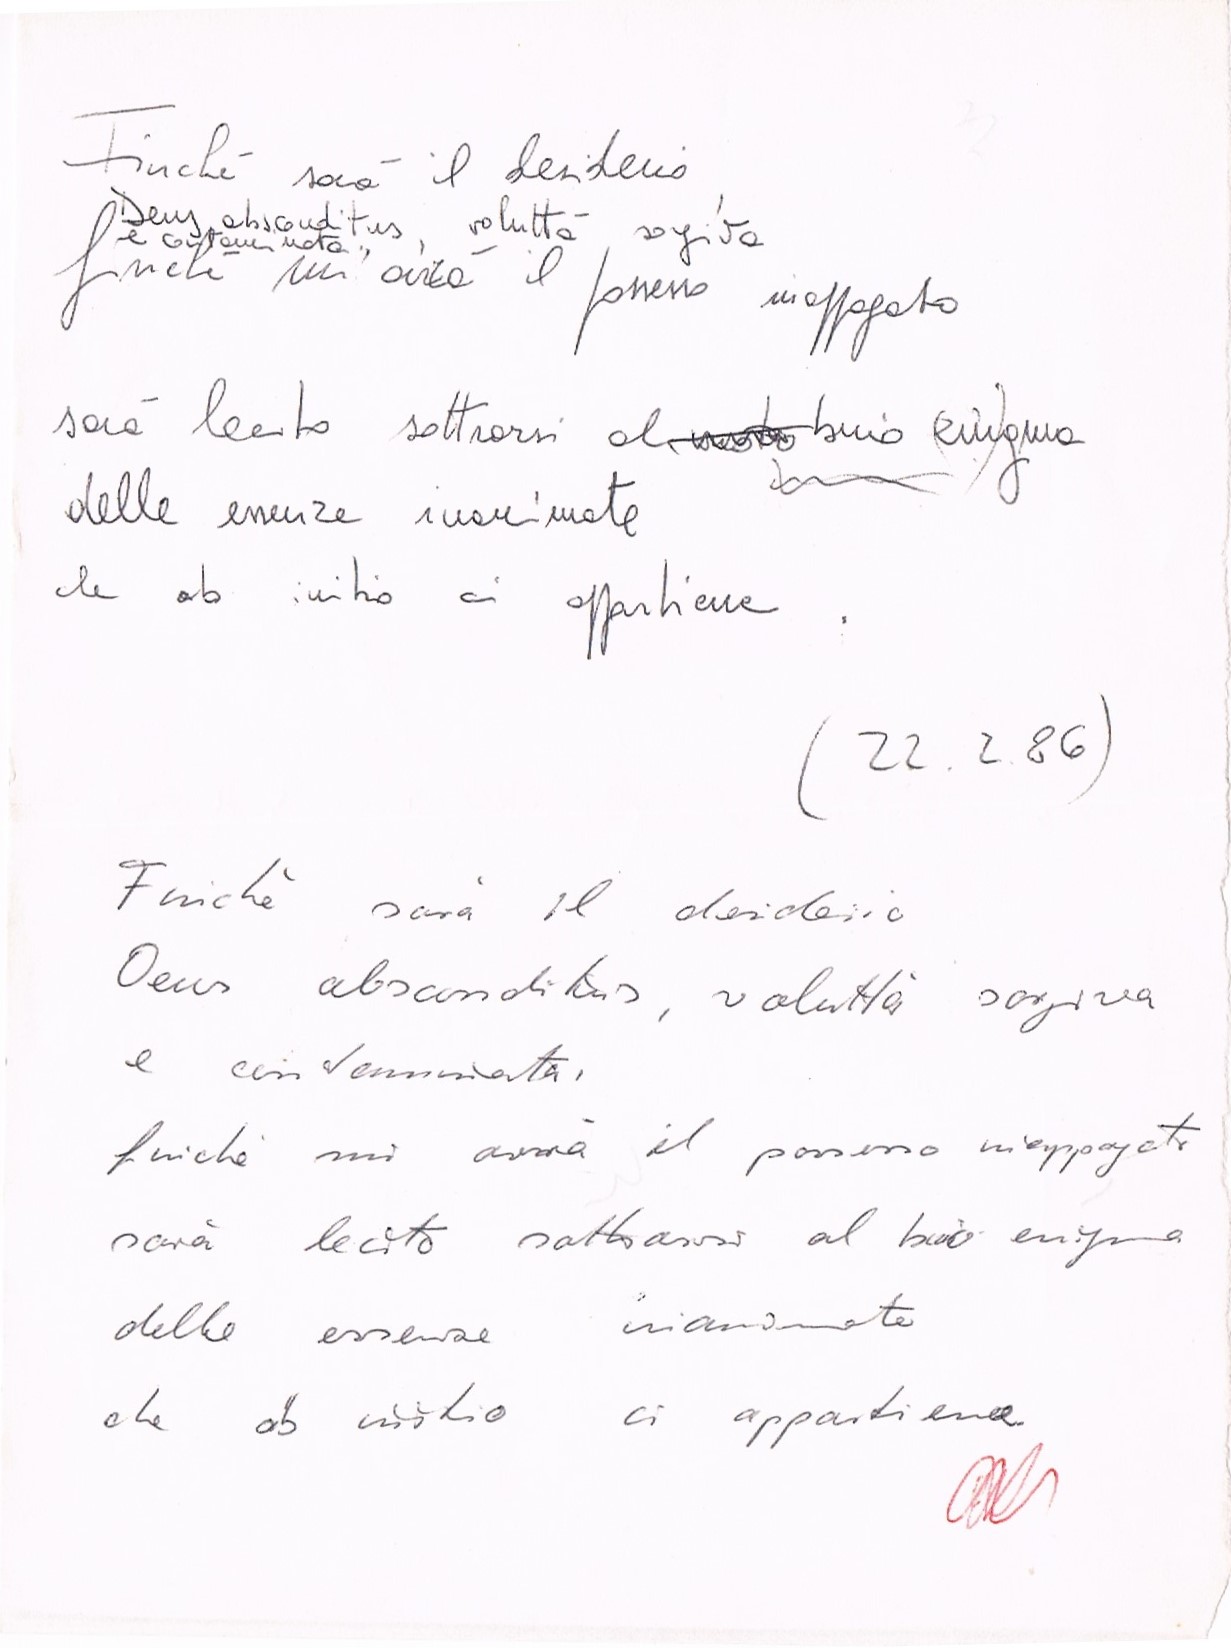 Finchè sarà il desiderio
Deus absconditus, voluttà sorgiva
e contaminata,
finchè mi avrà il possesso inappagato
sarà lecito sottrarsi al buio enigma
delle essenze inanimate
che ab initio ci appartiene.
(22.2.86)
Finchè sarà il desiderio
Deus absconditus, voluttà sorgiva
e contaminata,
finchè mi avrà il possesso inappagato
sarà lecito sottrarsi al buio enigma
delle essenze inanimate
che ab initio ci appartiene